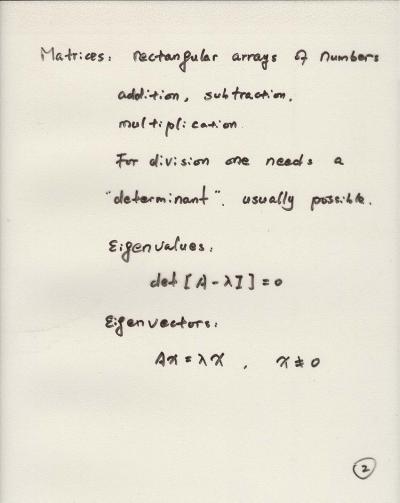 Matrices: rectangular arrays of numbers
addition, subtraction,
multiplication
For division one needs a
"determinant". usually possible.
Eigenvalues:
det [A - λI] = 0
Eigenvectors:
Ax = λx , x ≠ 0
2